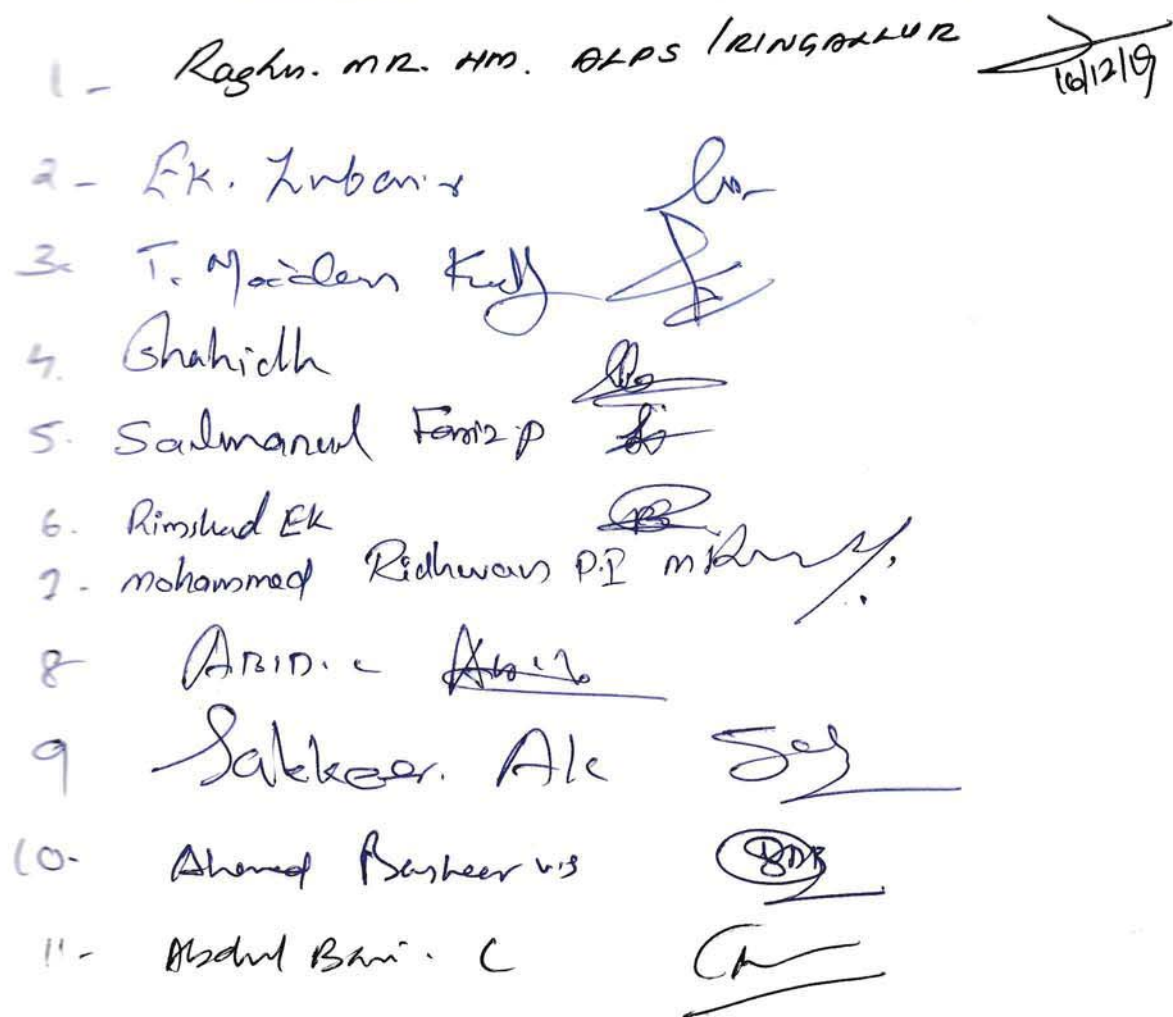 1 - Raghu. MR. HM. ALPS IRINGALLUR
16/12/19
2 - EK. Zubair
3. T. Moideen Kutty
4. Shahidh
5. Salmanul Fariz P
6. Rimshad EK
7 - Mohammed Ridhwan P.P
8 ABID. C
9 Sakkeer. AK
10- Ahamed Basheer
11- Abdul Bari. C